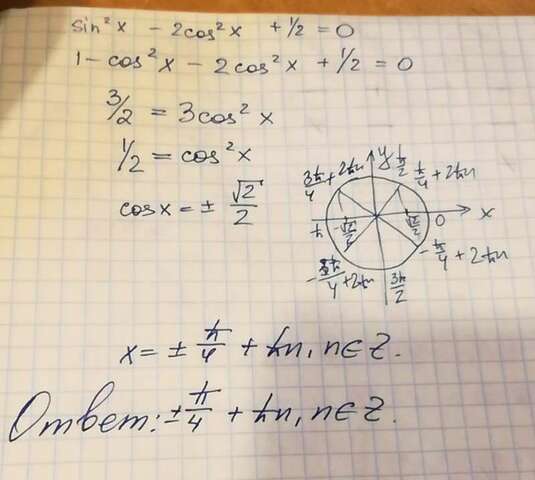 sin²x - 2cos²x + 1/2 = 0
1 - cos²x - 2cos²x + 1/2 = 0
3/2 = 3cos²x
1/2 = cos²x
cosx = ± √2/2
y
π/2
3π/4 + 2πn
π/4 + 2πn
π
-√2/2
√2/2
0
x
-3π/4 + 2πn
3π/2
-π/4 + 2πn
x = ± π/4 + πn, n∈Z.
Ответ: ± π/4 + πn, n∈Z.